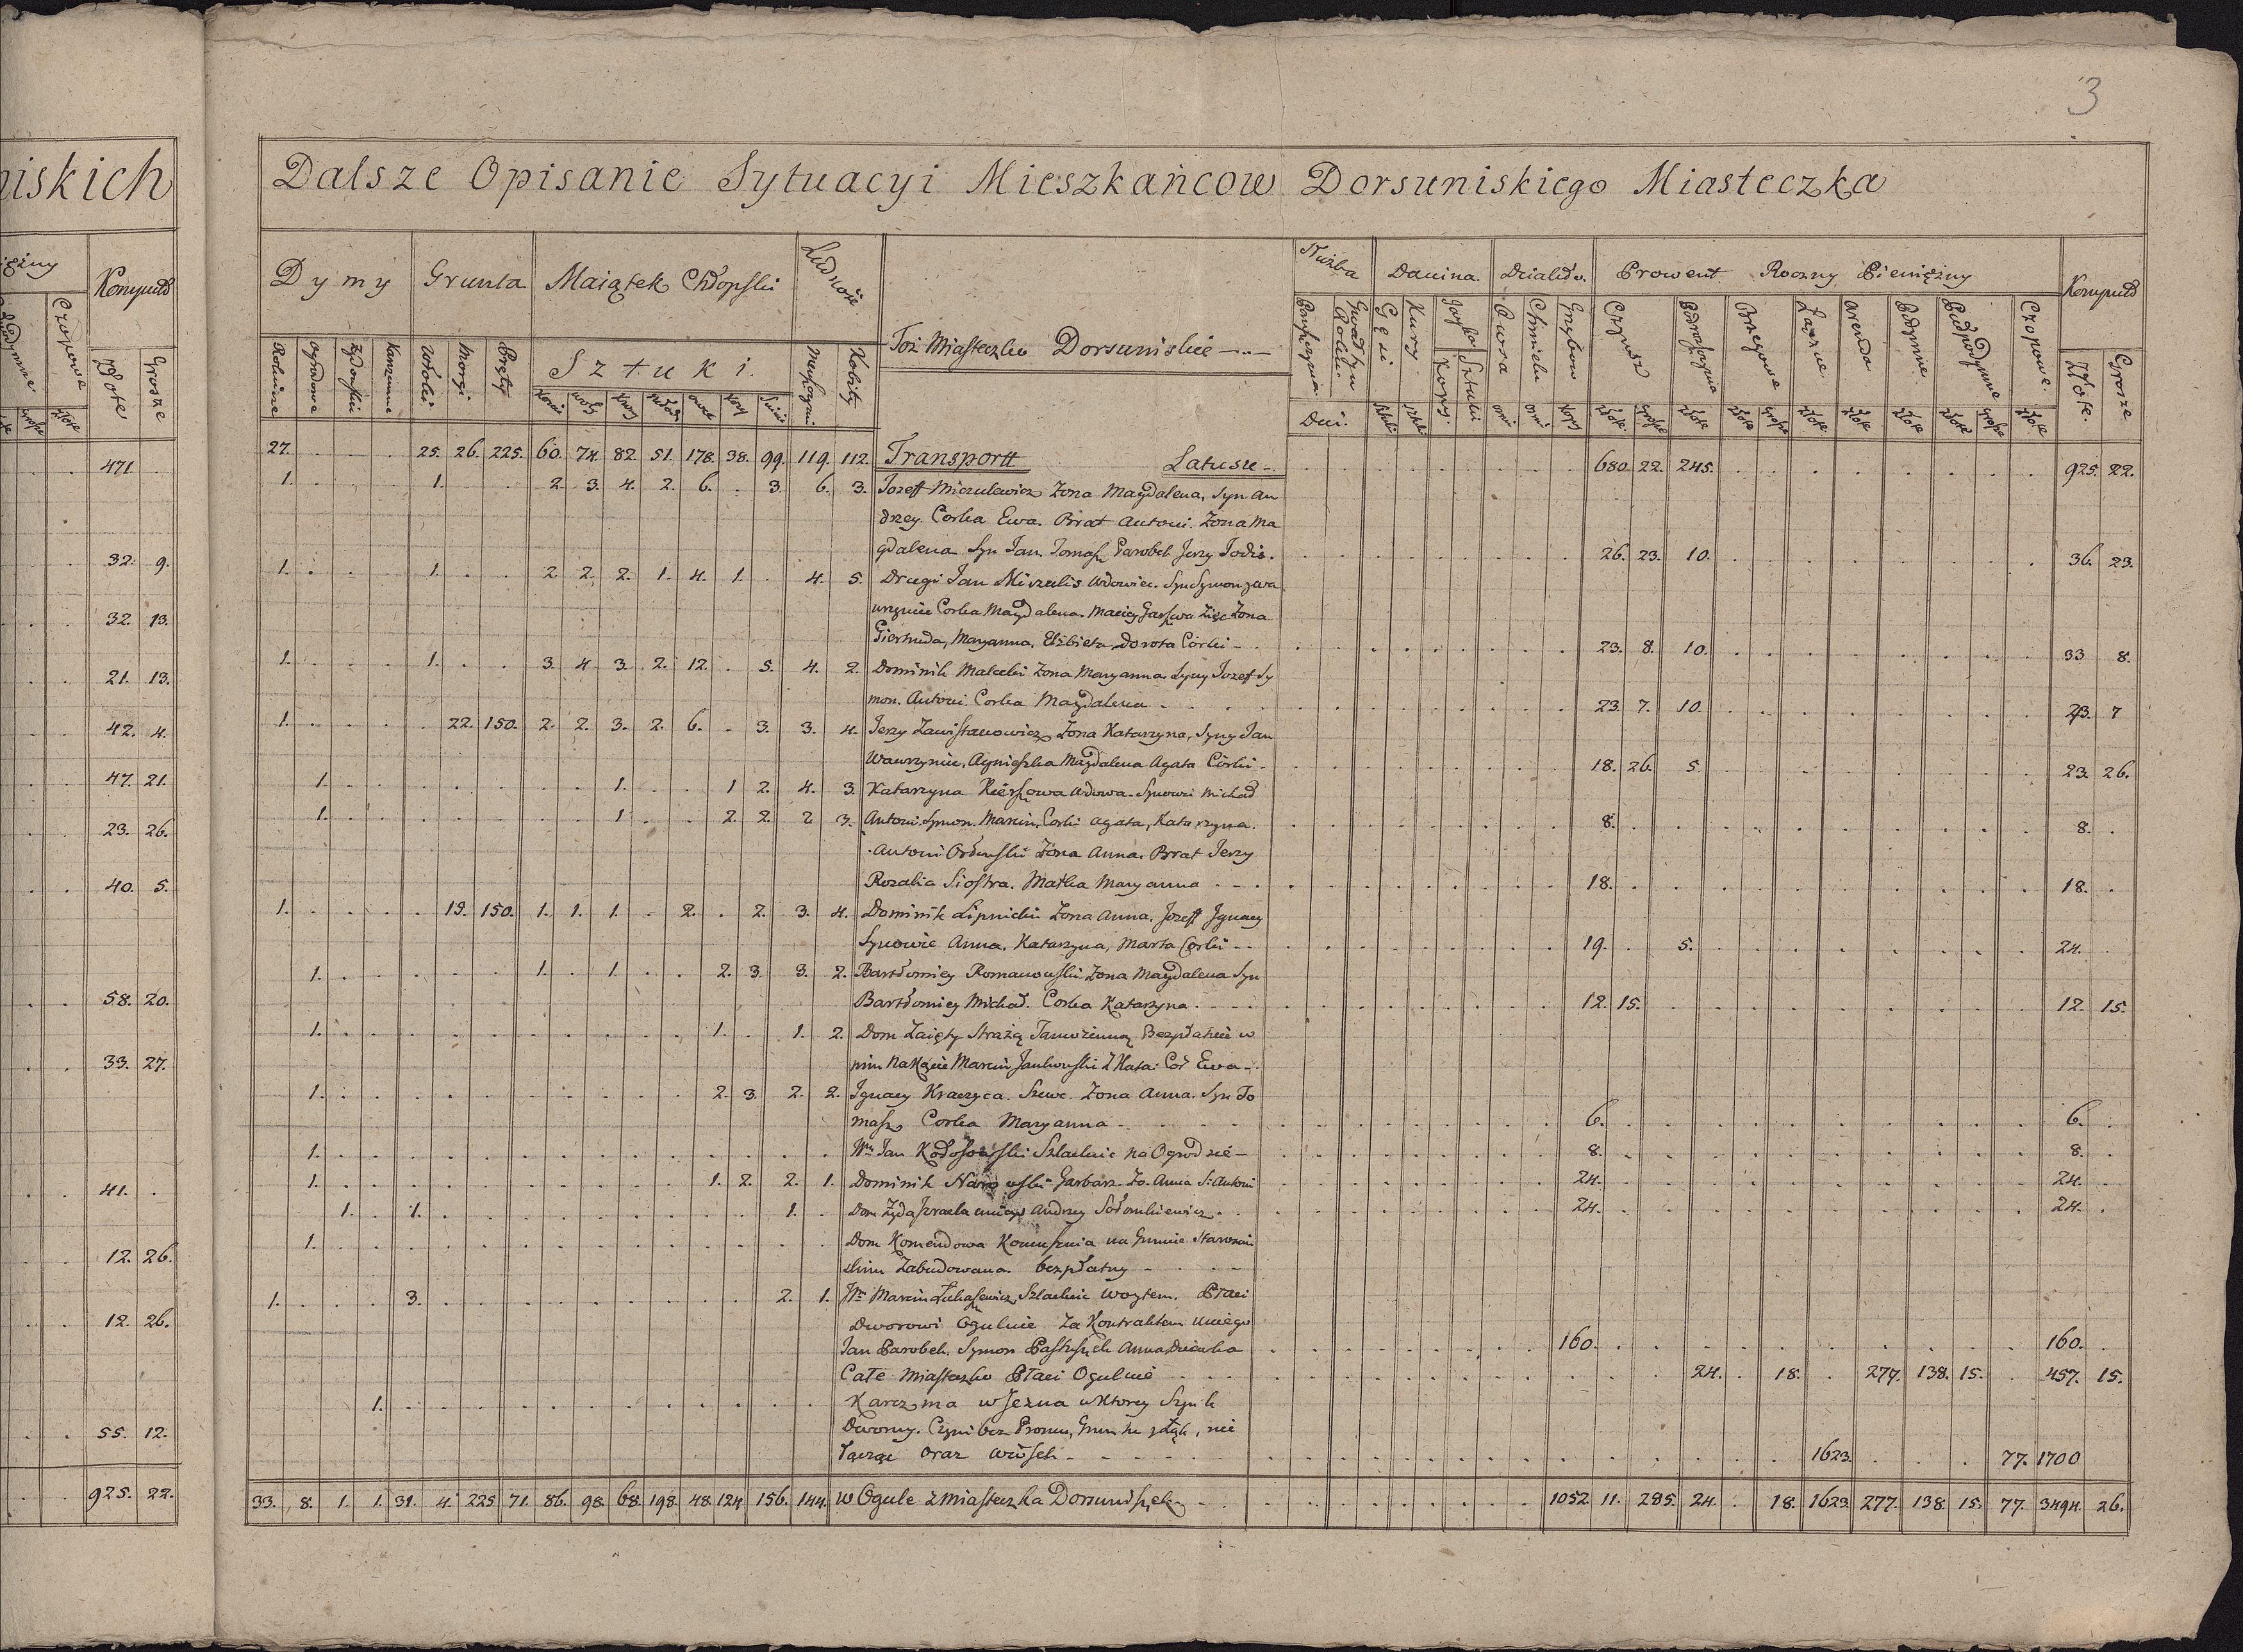 3
niskich
Dalsze Opisanie Sytuacyi Mieszkańcow Dorsuniskiego Miasteczka
Czopowa
Komput
Złote
Grosze
471.
32. 9.
32. 13.
21. 13.
42. 4.
47. 21.
23. 26.
40. 5.
58. 20.
33. 27.
41.
12. 26.
12. 26.
55. 12.
925. 22.
Dymy Grunta Maiątek Chłopski Ludność Służba Danina Prowent Roczny Pieniężny Komput
Rolnicze Ogrodowe Żydowskie Karczemne Włoki Morgi Pręty Sztuki. Męszczyzni Kobity
Toż Miasteczko Dorsuniskie
Pańszczyzna Gęsi Kury Jayka Kopy Sztuki Owsa Chmielu Grzybow Czynsz Brzegowe Łaźne Arenda Podymne Czopowe Złote Grosze
Dni.
27. 25. 26. 225. 60. 74. 82. 51. 178. 38. 99. 119. 112. Transportt Latusze 680. 22. 245. 925. 22.
1. 1. 2. 3. 4. 2. 6. 3. 6. 3. Jozeff Miczulewicz Zona Magdalena, Syn An
drzey. Corka Ewa. Brat Antoni. Zona Ma
gdalena Syn Jan. Tomasz Parobek Jerzy Jodis. 26. 23. 10. 36. 23.
1. 1. 2. 2. 2. 1. 4. 1. 4. 5. Drugi Jan Miczulis Wdowiec. Syn Symon
Corka Magdalena. Maciey Zięć Zona
Giertruda, Maryanna, Elżbieta, Dorota Córki 23. 8. 10. 33 8.
1. 1. 3. 4 3. 2. 12. 5. 4. 2. Dominik Malecki Zona Maryanna. Syny Jozef Sy
mon. Antoni. Corka Magdalena 23. 7. 10. 23. 7
1. 22. 150. 2. 2. 3. 2. 6. 3. 3. 4. Jerzy Zawistanowicz Zona Katarzyna, Syny Jan
Wawrzyniec, Agnieszka Magdalena Agata Córki 18. 26. 5. 23. 26.
1. 1. 1 2. 4. 3. Katarzyna Wdowa. Synowie Michał
1. 1 2. 2. 2 3. Antoni. Symon. Marcin. Corki Agata, Katarzyna. 8. 8.
Antoni Zona Anna. Brat Jerzy
Rozalia Siostra. Matka Maryanna 18. 18.
1. 19. 150. 1. 1. 1. 2. 2. 3. 4. Dominik Lipnicki Zona Anna. Jozeff Jgnacy
Synowie Anna. Katarzyna, Marta Corki 19. 5. 24.
1. 1. 1. 2. 3. 3. 2. Bartłomiey Romanowski Zona Magdalena Syn
Bartłomiey Michał. Corka Katarzyna 12. 15. 12. 15.
1. 1. 1. 2. Dom Zaięty Strażą Tamożenną Bezpłatnie w
nim Na Kącie Marcin Jankowski Ewa
1. 2. 3. 2. 2. Jgnacy Kraczyca. Szewc. Zona Anna. Syn To
masz Corka Maryanna 6. 6.
1. Jan Szlachcic na Ogrodzie 8. 8.
1. 1. 2. 2. 1. Dominik Garbarz. Zo. Anna S: Antoni 24. 24.
1. 1. 1. Dom Żyda Andrzey 24. 24.
1. Dom Komendowa na Gruncie
Zabudowana. bezpłatny
1. 3. 2. 1. Marcin Łukaszewicz Szlachcic Woytem. Płaci
Dworowi Ogulnie Za Kontraktem Uniego
Jan Parobek. Symon Pastuszek Anna 160. 160.
Całe Miasteczko Płaci Ogulnie 24. 18. 277. 138. 15. 457. 15.
1. Karczma w Jezna w Ktorey Szynk
Dworny. Czyni bez Promu, Gruntu y Łąk, nie
łącząc oraz 1623. 77. 1700
33. 8. 1. 1. 31. 4. 225 71. 86. 98. 68. 198. 48. 124 156. 144. W Ogule z Miasteczka Dorsuniszek 1052. 11. 285. 24. 18. 1623. 277. 138. 15. 77. 3494. 26.